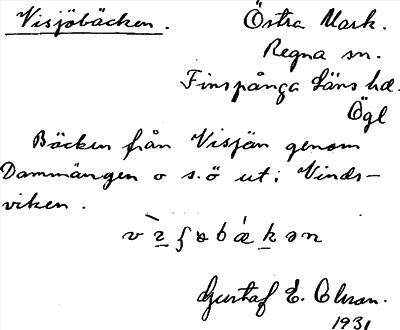 Visjöbäcken. Östra Mark.
Regna sn.
Finspånga läns hd.
Ögl
Bäcken från Visjän genom
Dammängen o s.ö ut i Vinds-
viken.
Gustaf E. Olsson.
1931